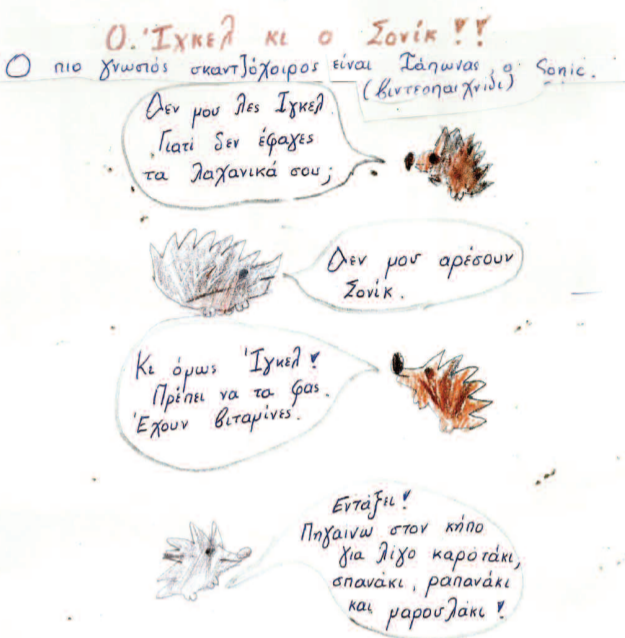 Ο Ίγκελ κι ο Σονίκ!!
Ο πιο γνωστός σκαντζόχοιρος είναι Ιάπωνας ο Sonic.
(βιντεοπαιχνίδι)
Δεν μου λες Ίγκελ.
Γιατί δεν έφαγες
τα λαχανικά σου;
Δεν μου αρέσουν
Σονίκ.
Κι όμως Ίγκελ!
Πρέπει να τα φας.
Έχουν βιταμίνες.
Εντάξει!
Πηγαίνω στον κήπο
για λίγο καροτάκι,
σπανάκι, ραπανάκι
και μαρουλάκι!